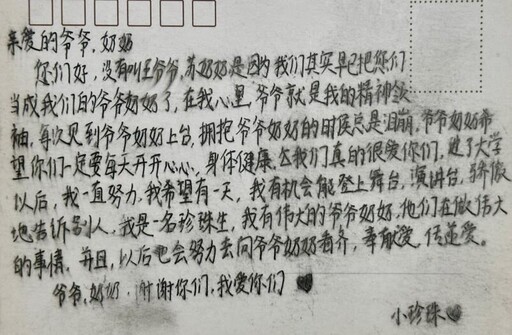 亲爱的爷爷,奶奶
您们好,没有叫王爷爷,苏奶奶是因为我们其实早已把您们
当成我们的爷爷奶奶了,在我心里,爷爷就是我的精神领
袖,每次见到爷爷奶奶上台,拥抱爷爷奶奶的时候总是泪崩,爷爷奶奶希
望你们一定要每天开开心心,身体健康,我们真的很爱你们,进了大学
以后,我一直努力,我希望有一天,我有机会能登上舞台,演讲台,骄傲
地告诉别人,我是一名珍珠生,我有伟大的爷爷奶奶,他们在做伟大
的事情,并且,以后也会努力去向爷爷奶奶看齐,奉献爱,传递爱。
爷爷,奶奶,谢谢你们,我爱你们
小珍珠